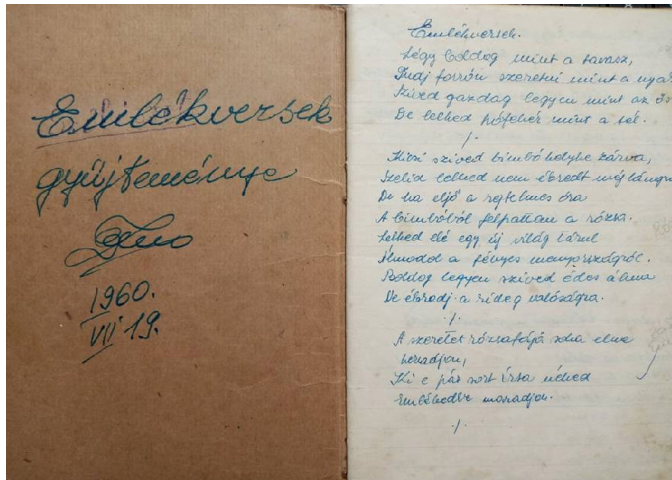 Emlékversek
gyüjteménye
1960.
VII 19.
Emlékversek.
Légy boldog mint a tavasz,
Tudj forrón szeretni mint a nyár
Szived gazdag legyen mint az ős
De lelked hófehér mint a tél.
./.
Kicsi szived bimbó helybe zárva,
Szelid lelked nem ébredt még lángra
De ha eljő a rejtelmes óra
A bimbóból felpattan a rózsa.
Lelked elé egy új világ tárul
Álmodol a fényes menyországról.
Boldog legyen szived édes álma
De ébredj a rideg valóságra.
./.
A szeretet rózsafájá soha el ne
száradjon,
Ki e pár sort írta néked
Emlékedbe maradjon.
./.